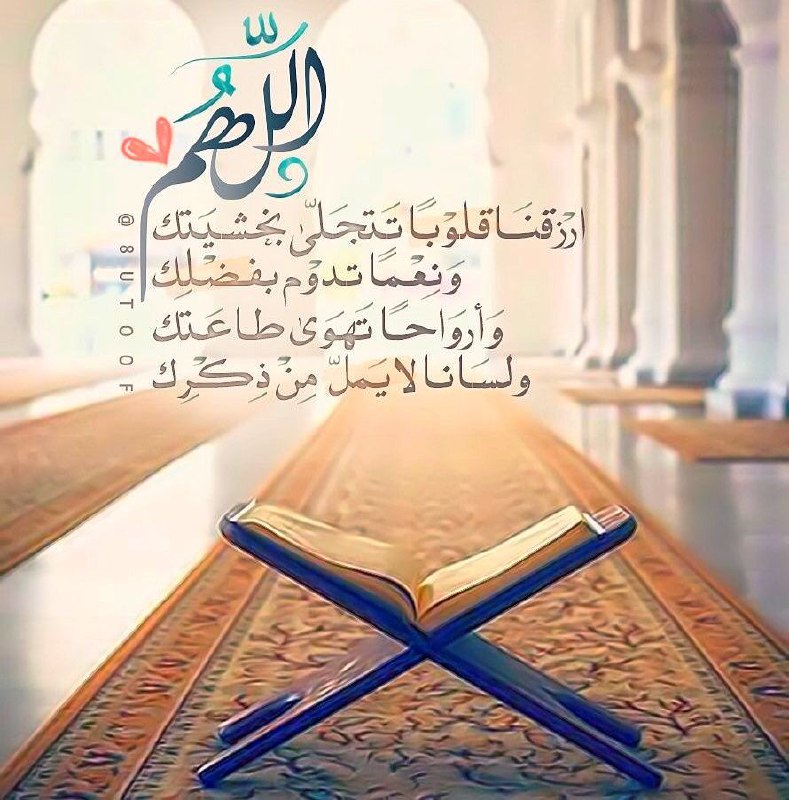 اللّٰهُم
ارْزقنَا قلوبًا تَتجَلّى بخشيَتك
وَنِعْمًا تدوْم بفضْلِك
وَأروَاحًا تَهوَى طاعَتك
ولسَانا لا يَملّ مِنْ ذِكْرِك
@8UTOOF